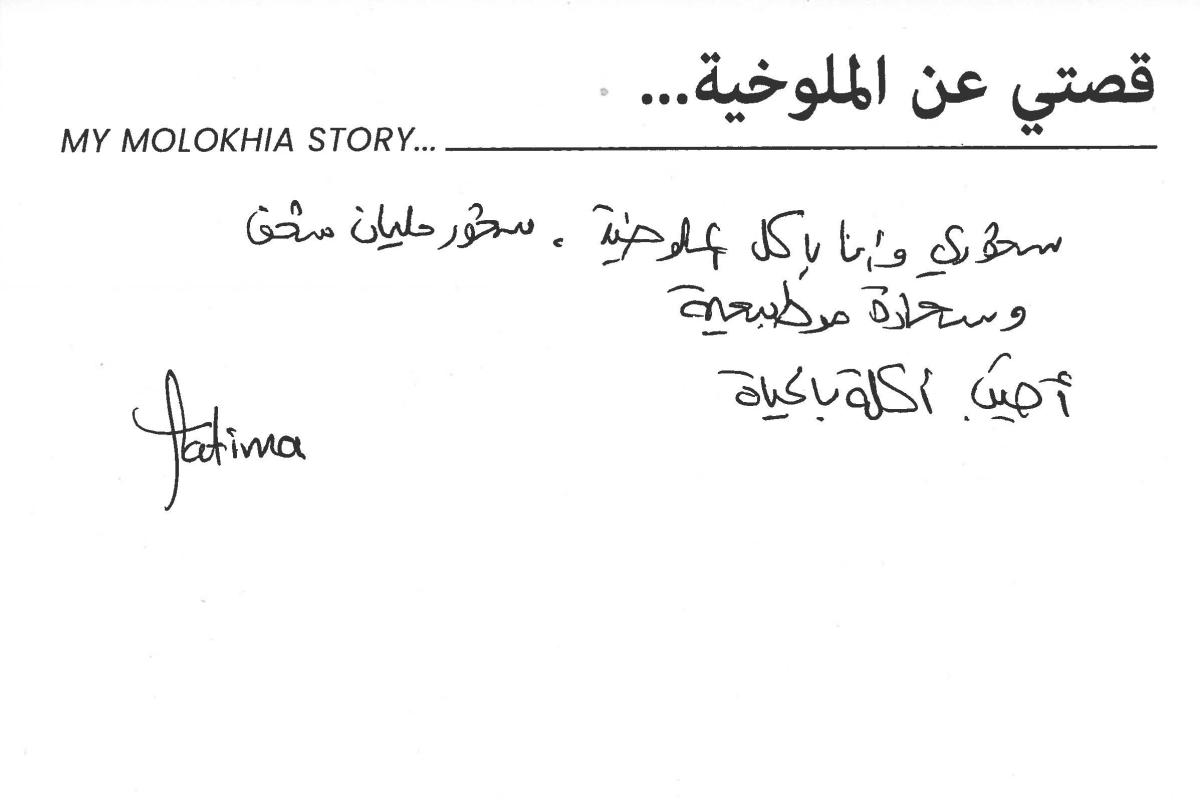 قصتي عن الملوخية...
MY MOLOKHIA STORY...
شعوري وأنا باكل ملوخية، شعور مليان شغف
وسعادة مو طبيعية
أطيب أكلة بالحياة
Fatima